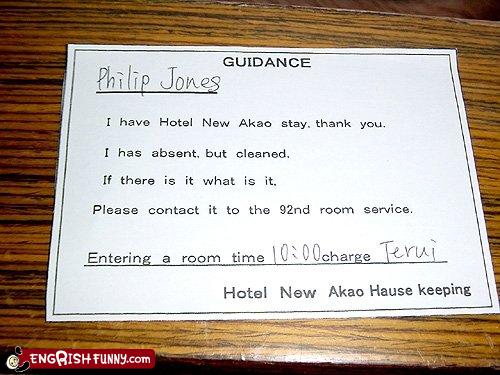 GUIDANCE
Philip Jones
I have Hotel New Akao stay, thank you.
I has absent, but cleaned.
If there is it what is it,
Please contact it to the 92nd room service.
Entering a room time 10:00 charge Terui
Hotel New Akao Hause keeping
ENGRISHFUNNY.COM